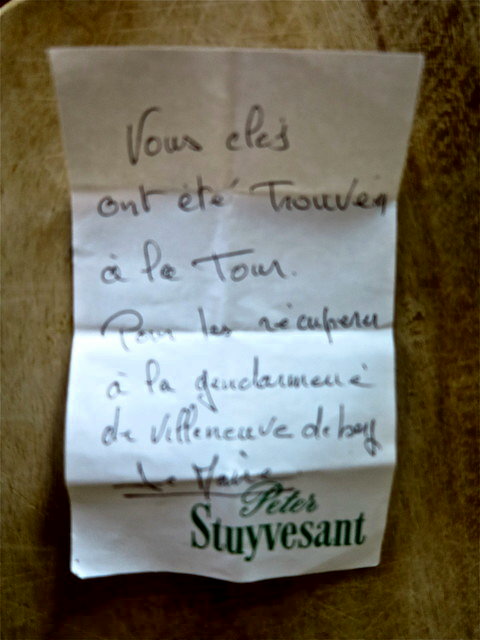 Vous cles
ont été Trouvée
à la Tour.
Pour les récuperer
à la gendarmerie
de Villeneuve de berg
Le Maire
Peter
Stuyvesant